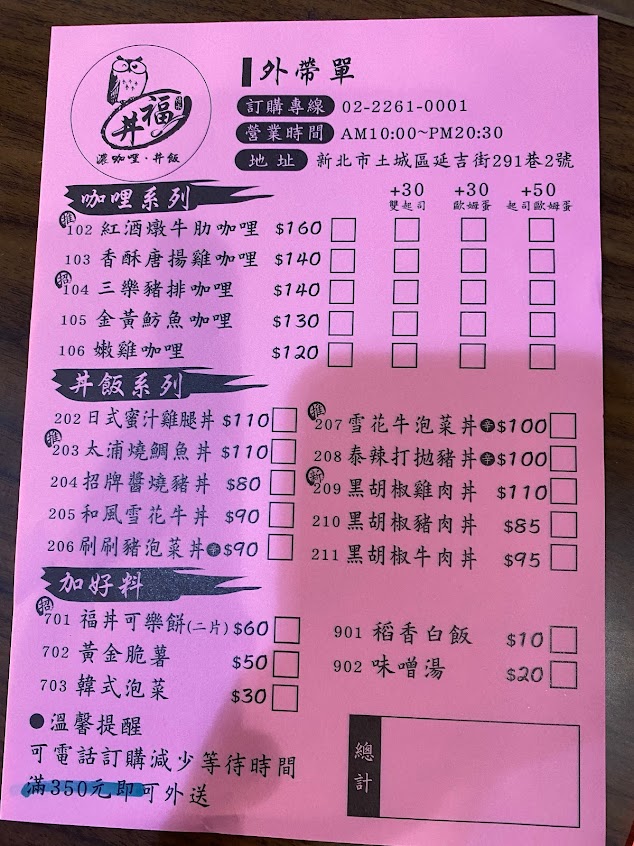 福丼
濃咖哩·丼飯
外帶單
訂購專線 02-2261-0001
營業時間 AM10:00~PM20:30
地址 新北市土城區延吉街291巷2號
咖哩系列
+30 +30 +50
雙起司 歐姆蛋 起司歐姆蛋
推 102 紅酒燉牛肋咖哩 $160
103 香酥唐揚雞咖哩 $140
招 104 三樂豬排咖哩 $140
105 金黃魴魚咖哩 $130
106 嫩雞咖哩 $120
丼飯系列
202 日式蜜汁雞腿丼 $110
推 203 太浦燒鯛魚丼 $110
204 招牌醬燒豬丼 $80
205 和風雪花牛丼 $90
206 刷刷豬泡菜丼 辛 $90
推 207 雪花牛泡菜丼 辛 $100
208 泰辣打拋豬丼 辛 $100
新 209 黑胡椒雞肉丼 $110
210 黑胡椒豬肉丼 $85
211 黑胡椒牛肉丼 $95
加好料
招 701 福丼可樂餅(二片) $60
702 黃金脆薯 $50
703 韓式泡菜 $30
901 稻香白飯 $10
902 味噌湯 $20
●溫馨提醒
可電話訂購減少等待時間
滿350元即可外送
總計